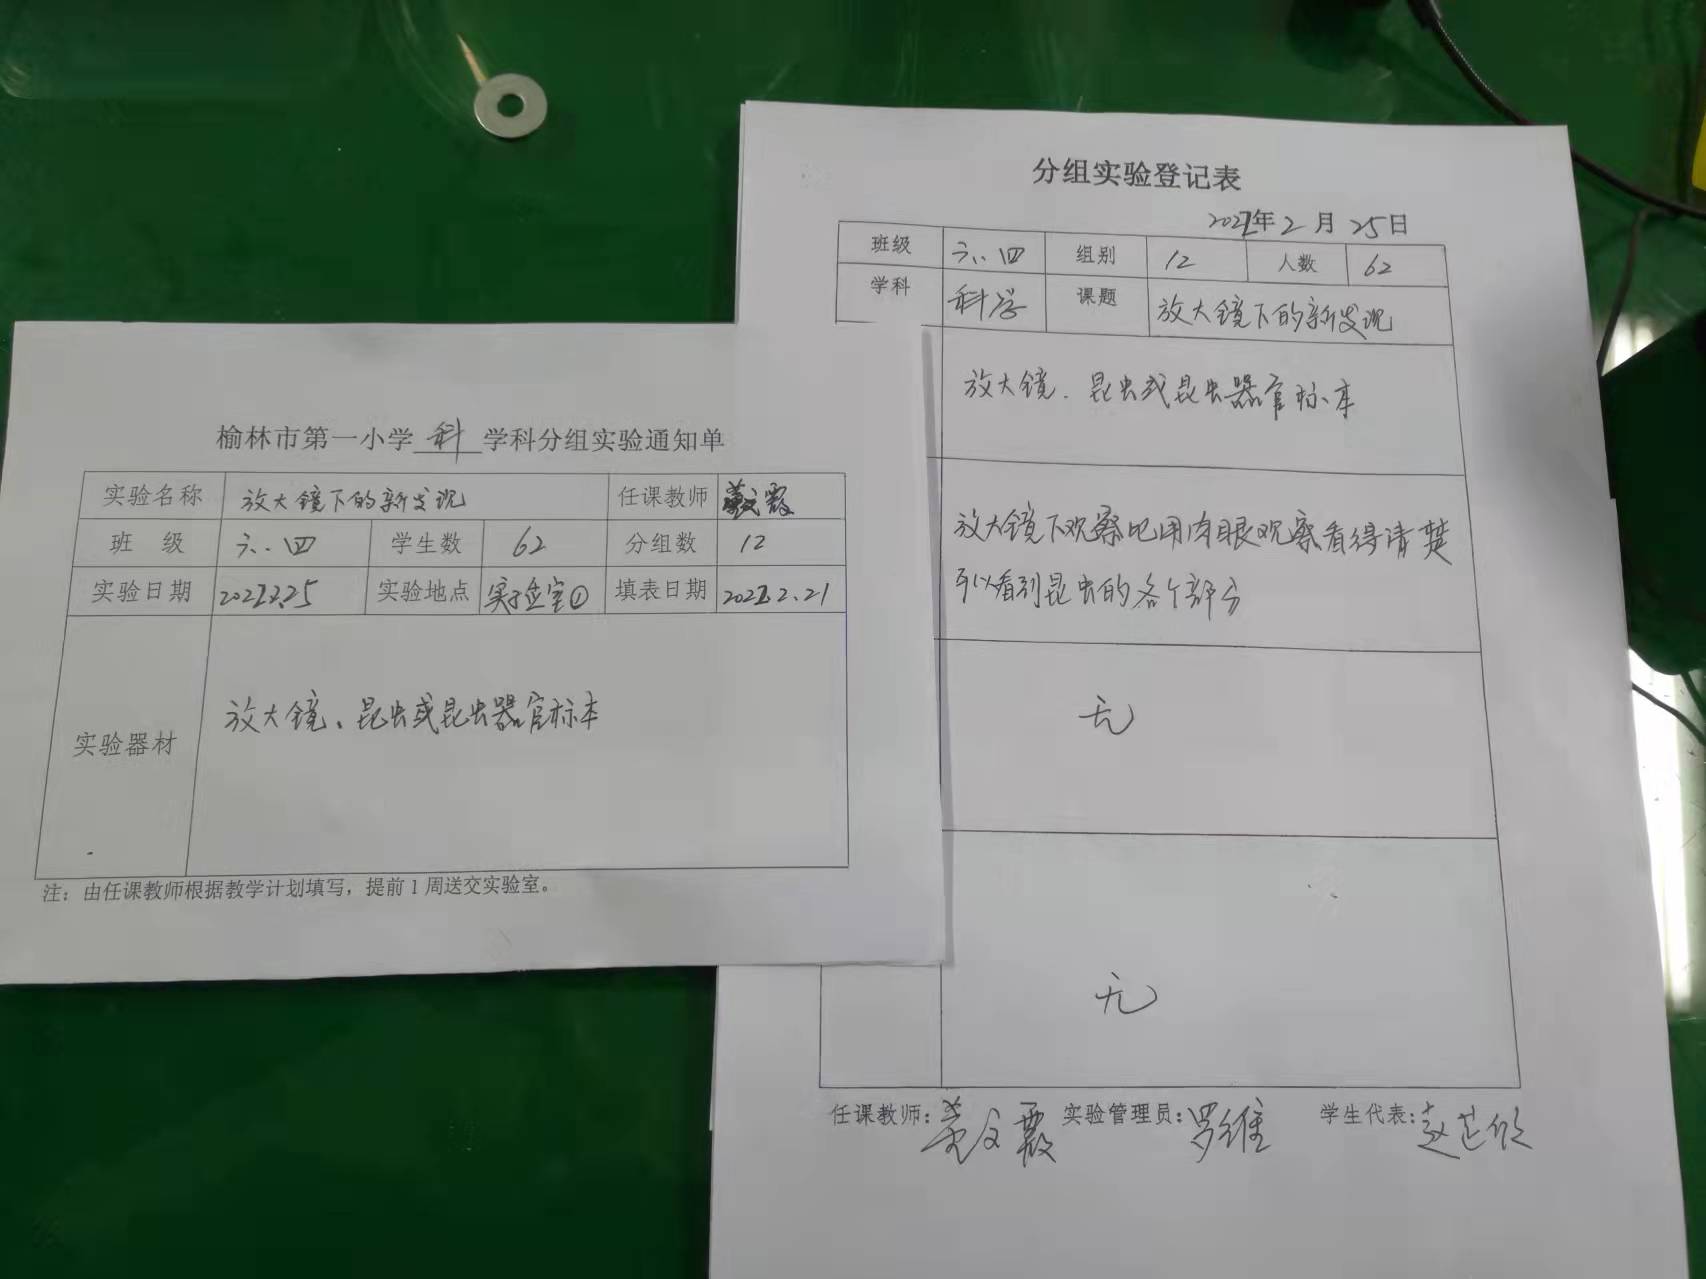 榆林市第一小学 科 学科分组实验通知单
实验名称 放大镜下的新发现 任课教师
班 级 六.四 学生数 62 分组数 12
实验日期 2022.2.25 实验地点 实验室① 填表日期 2022.2.21
实验器材 放大镜、昆虫或昆虫器官标本
注：由任课教师根据教学计划填写，提前1周送交实验室。
分组实验登记表
2022年2月25日
班级 六.四 组别 12 人数 62
学科 科学 课题 放大镜下的新发现
放大镜、昆虫或昆虫器官标本
放大镜下观察比用肉眼观察看得请楚
可以看到昆虫的各个部分
无
无
任课教师： 实验管理员：罗维 学生代表：